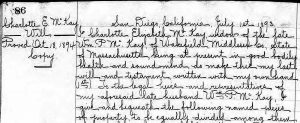 86
Charlotte E. McKay
Will
Proved Oct 18, 1894
Copy
San Diego California July 1st 1893.
I Charlotte Elizabeth McKay widow of the late
Wm P. McKay of Wakefield, Middlesex Co. State
of Massachusetts, being at present in good bodily
health and sound mind, do make this my last
will and testament, written with my own hand.
1st To the legal heirs and representatives of
my aforesaid late husband Wm P. McKay I
give and bequeath the following named
of property to be equally divided among them